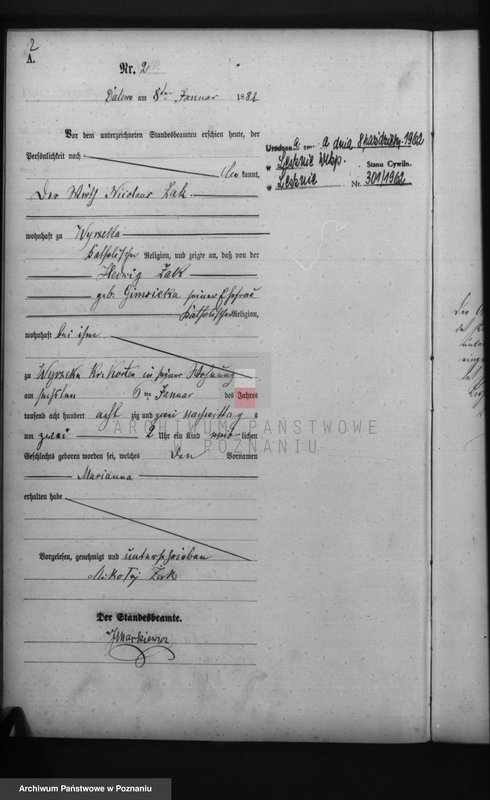 2
A.
Nr. 2
am 8ten Januar 1882
Vor dem unterzeichneten Standesbeamten erschien heute, der
Persönlichkeit nach
kannt,
Der Wirth Nicolaus Zak
wohnhaft zu Wyrzeka
katholischer Religion, und zeigte an, daß von der
Hedwig Zak
geb. seiner Ehefrau
katholischer Religion,
wohnhaft bei ihm
zu Wyrzeka in seiner Wohnung
am sechsten 6ten Januar des Jahres
tausend acht hundert acht zig und zwei nachmittag s
um zwei 2 Uhr ein Kind weib lichen
Geschlechts geboren worden sei, welches den Vornamen
Marianna
erhalten habe
Vorgelesen, genehmigt und unterschrieben
Mikołaj Zak
Der Standesbeamte.
Markiewicz
dnia 1962
w
Stanu Cywiln.
w Nr. 301/1962
ARCHIWUM PAŃSTWOWE
W POZNANIU
Archiwum Państwowe w Poznaniu